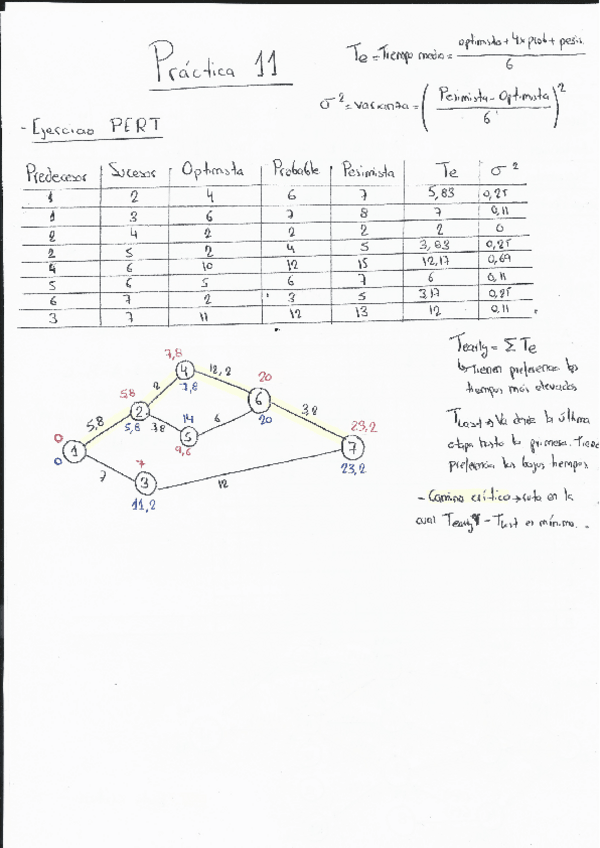 Práctica 11
Te = Tiempo medio = optimista + 4x prob + pesis. / 6
σ² = Varianza = (Pesimista - Optimista / 6)²
- Ejercicio PERT
Predecesor Sucesor Optimista Probable Pesimista Te σ²
1 2 4 6 7 5,83 0,25
1 3 6 7 8 7 0,11
2 4 2 2 2 2 0
2 5 2 4 5 3,83 0,25
4 6 10 12 15 12,17 0,69
5 6 5 6 7 6 0,11
6 7 2 3 5 3,17 0,25
3 7 11 12 13 12 0,11
Tearly = Σ Te
↳ Tienen preferencia los
tiempos más elevados
Tlast → Va desde la última
etapa hasta la primera. Tiene
preferencia los bajos tiempos
- Camino crítico → ruta en la
cual Tearly - Tlast es mínimo.
7,8
4 12,2
7,8
20
5,8 2
2
6 3,2
5,8 3,8 14 6 20
5,8
5
9,6
23,2
7
23,2
0
1
0
7 7
3 12
11,2